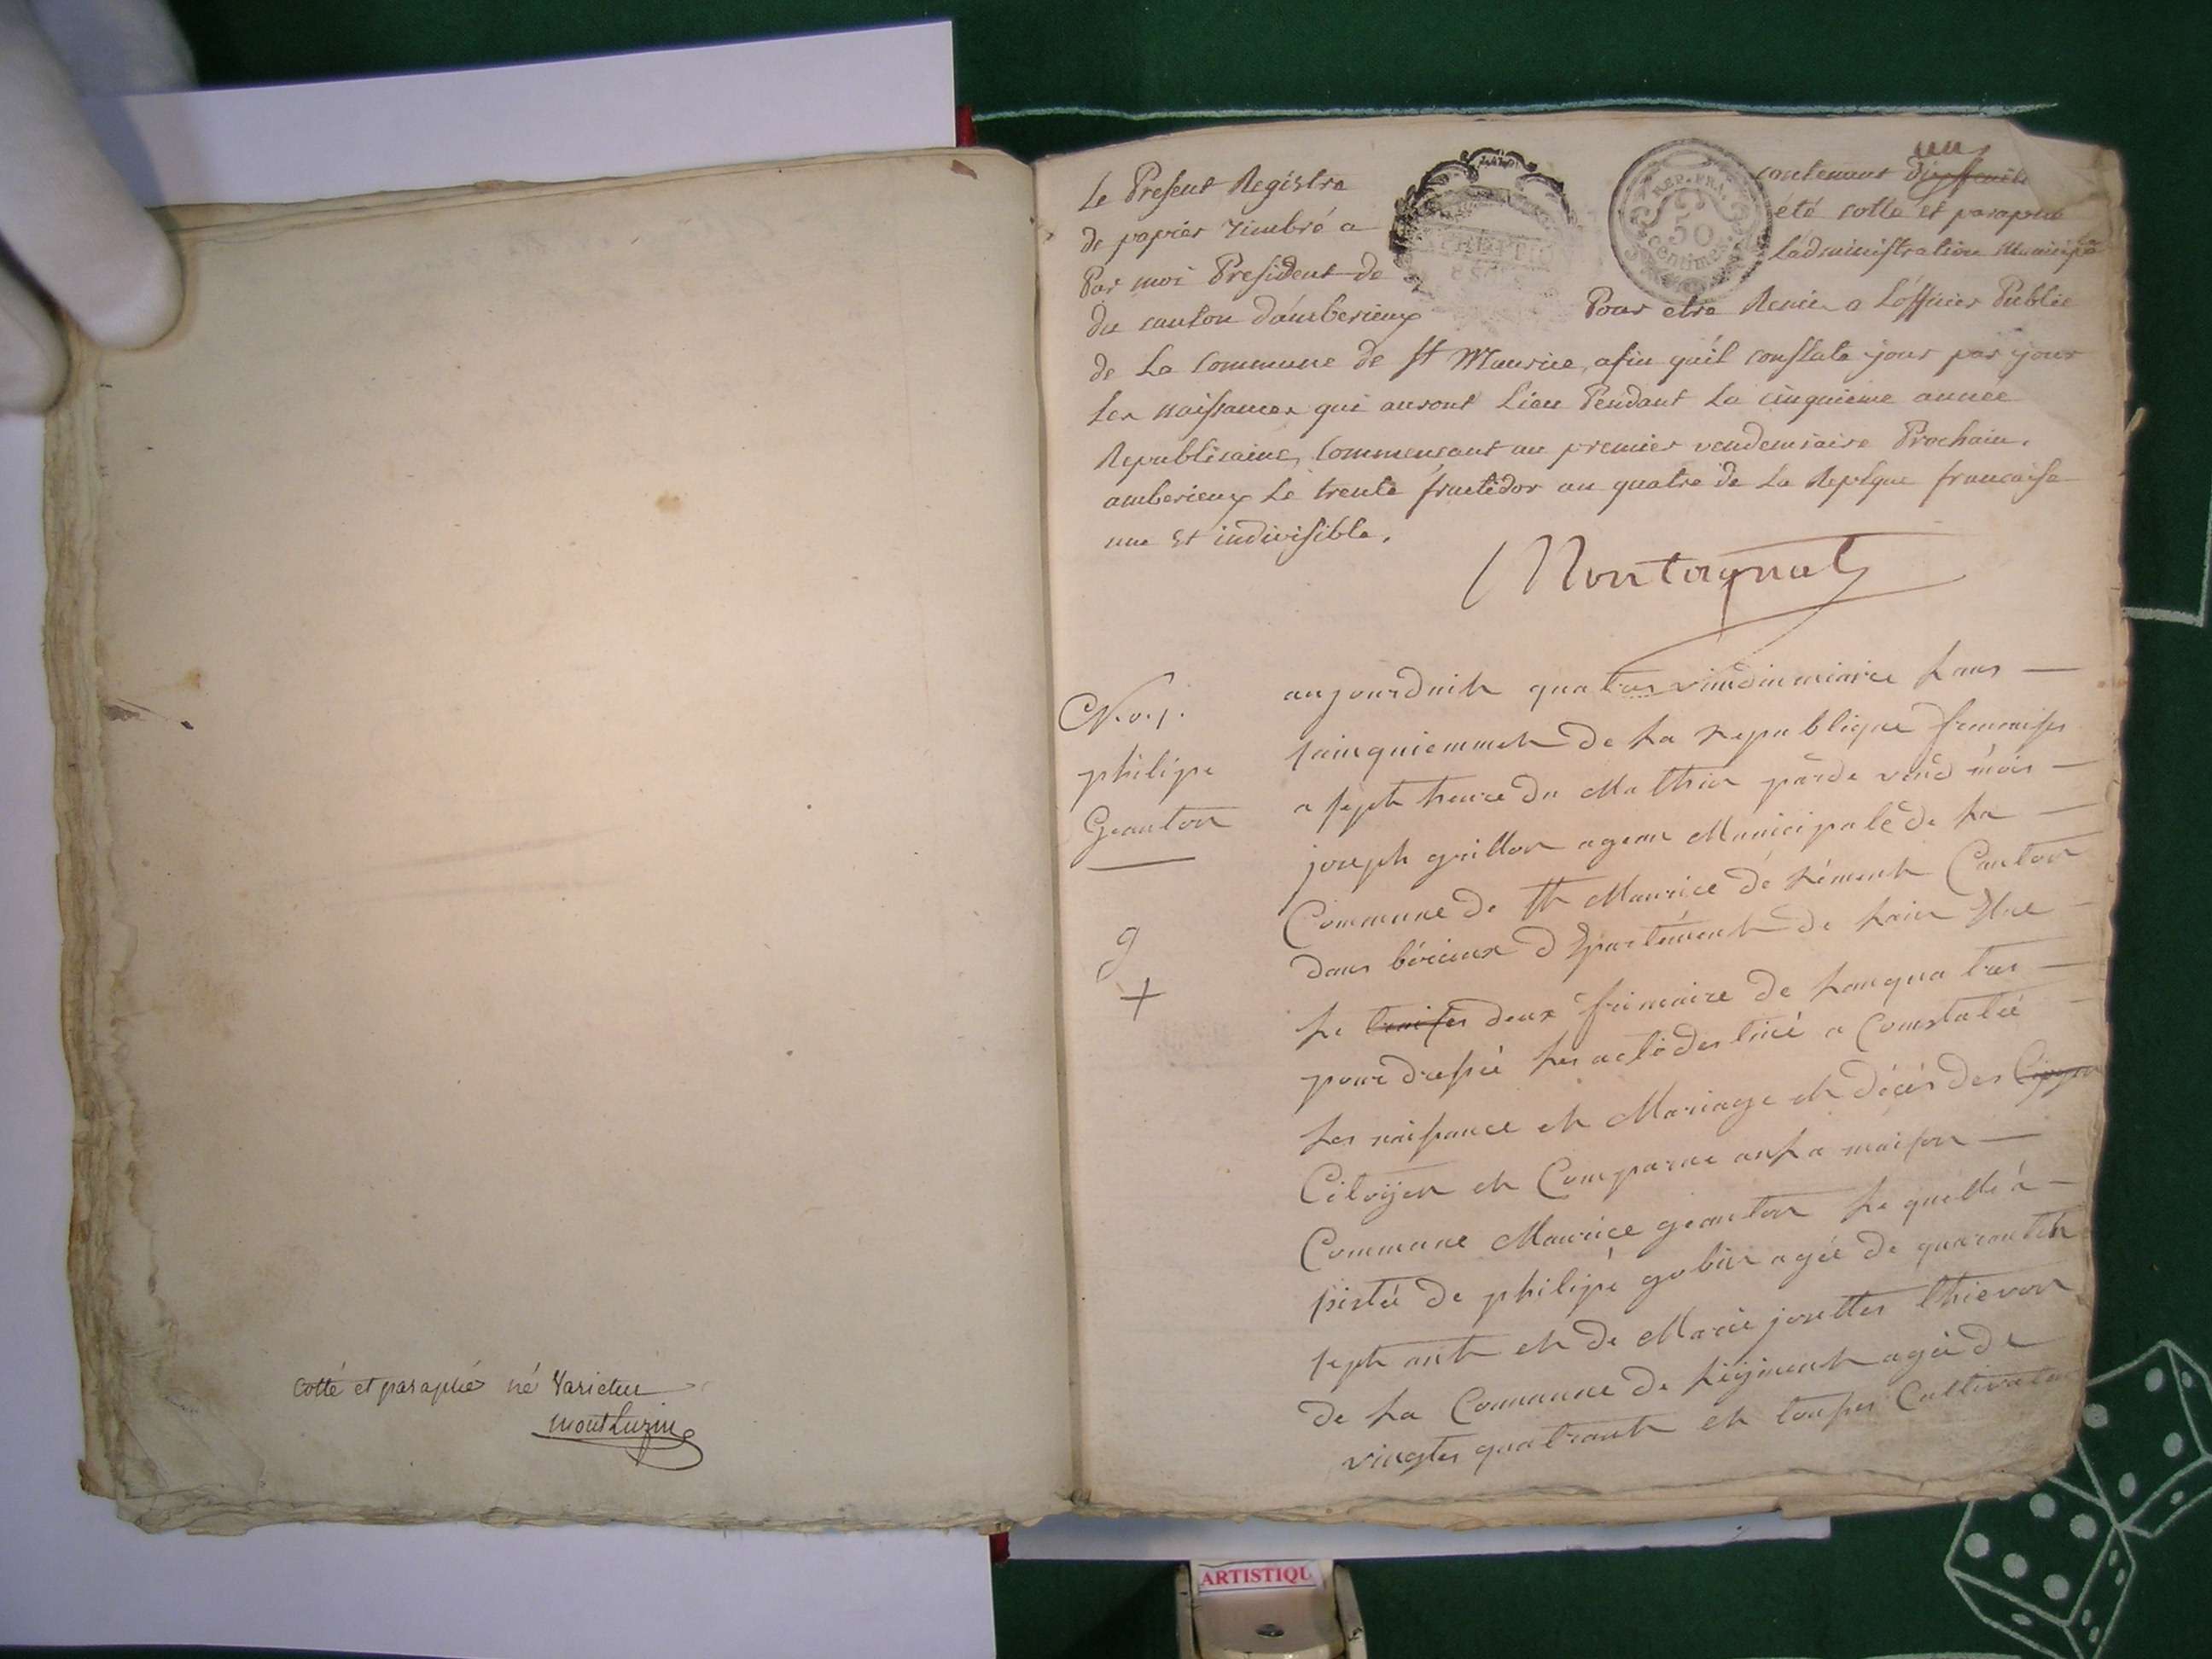 cotté et paraphé né Varietur
montluzin
Le Present Registre contenant un
de papier timbré a eté cotté et paraphé
Par moi President de Ladministration Municipa
REP. FRA.
50
centimes
du canton d'amberieux Pour etre Remis a L'officier Public
de La Commune de St Maurice, afin qu'il constate jour par jour
Les naissances qui auront Lieu Pendant La cinquieme année
Republicaine, Commencant au premier vendemiaire Prochain.
amberieux Le trente fructidor an quatre de La Repque francaise
une et indivisible.
Montagnat
No. 1.
philipe
Geanton
g
+
aujourduith quatres vindinmiaire Lans
sainquiemmeth de La republique francaises
a septh heure du Mathin parde vend mois
joseph guillon agean Municipale de La
Commune de Sth Maurice de Rémenh Canton
dans bérieux Département de Lain Elue
Le deux frimaire de Lanquatres
pour dressé Les acte destiné a Constatée
Les naissance eth Mariage eth décés des
Citoÿen eth Comparue ansa maison
Commune Maurice geanton Le quelle a
sistée de philipe gobin agée de quaranteh
septh anth eth de Marie josettes thievon
de La Commune de Leÿmenth agée de
vingtes quatranth eth touses Cultivateur
ARTISTIQU